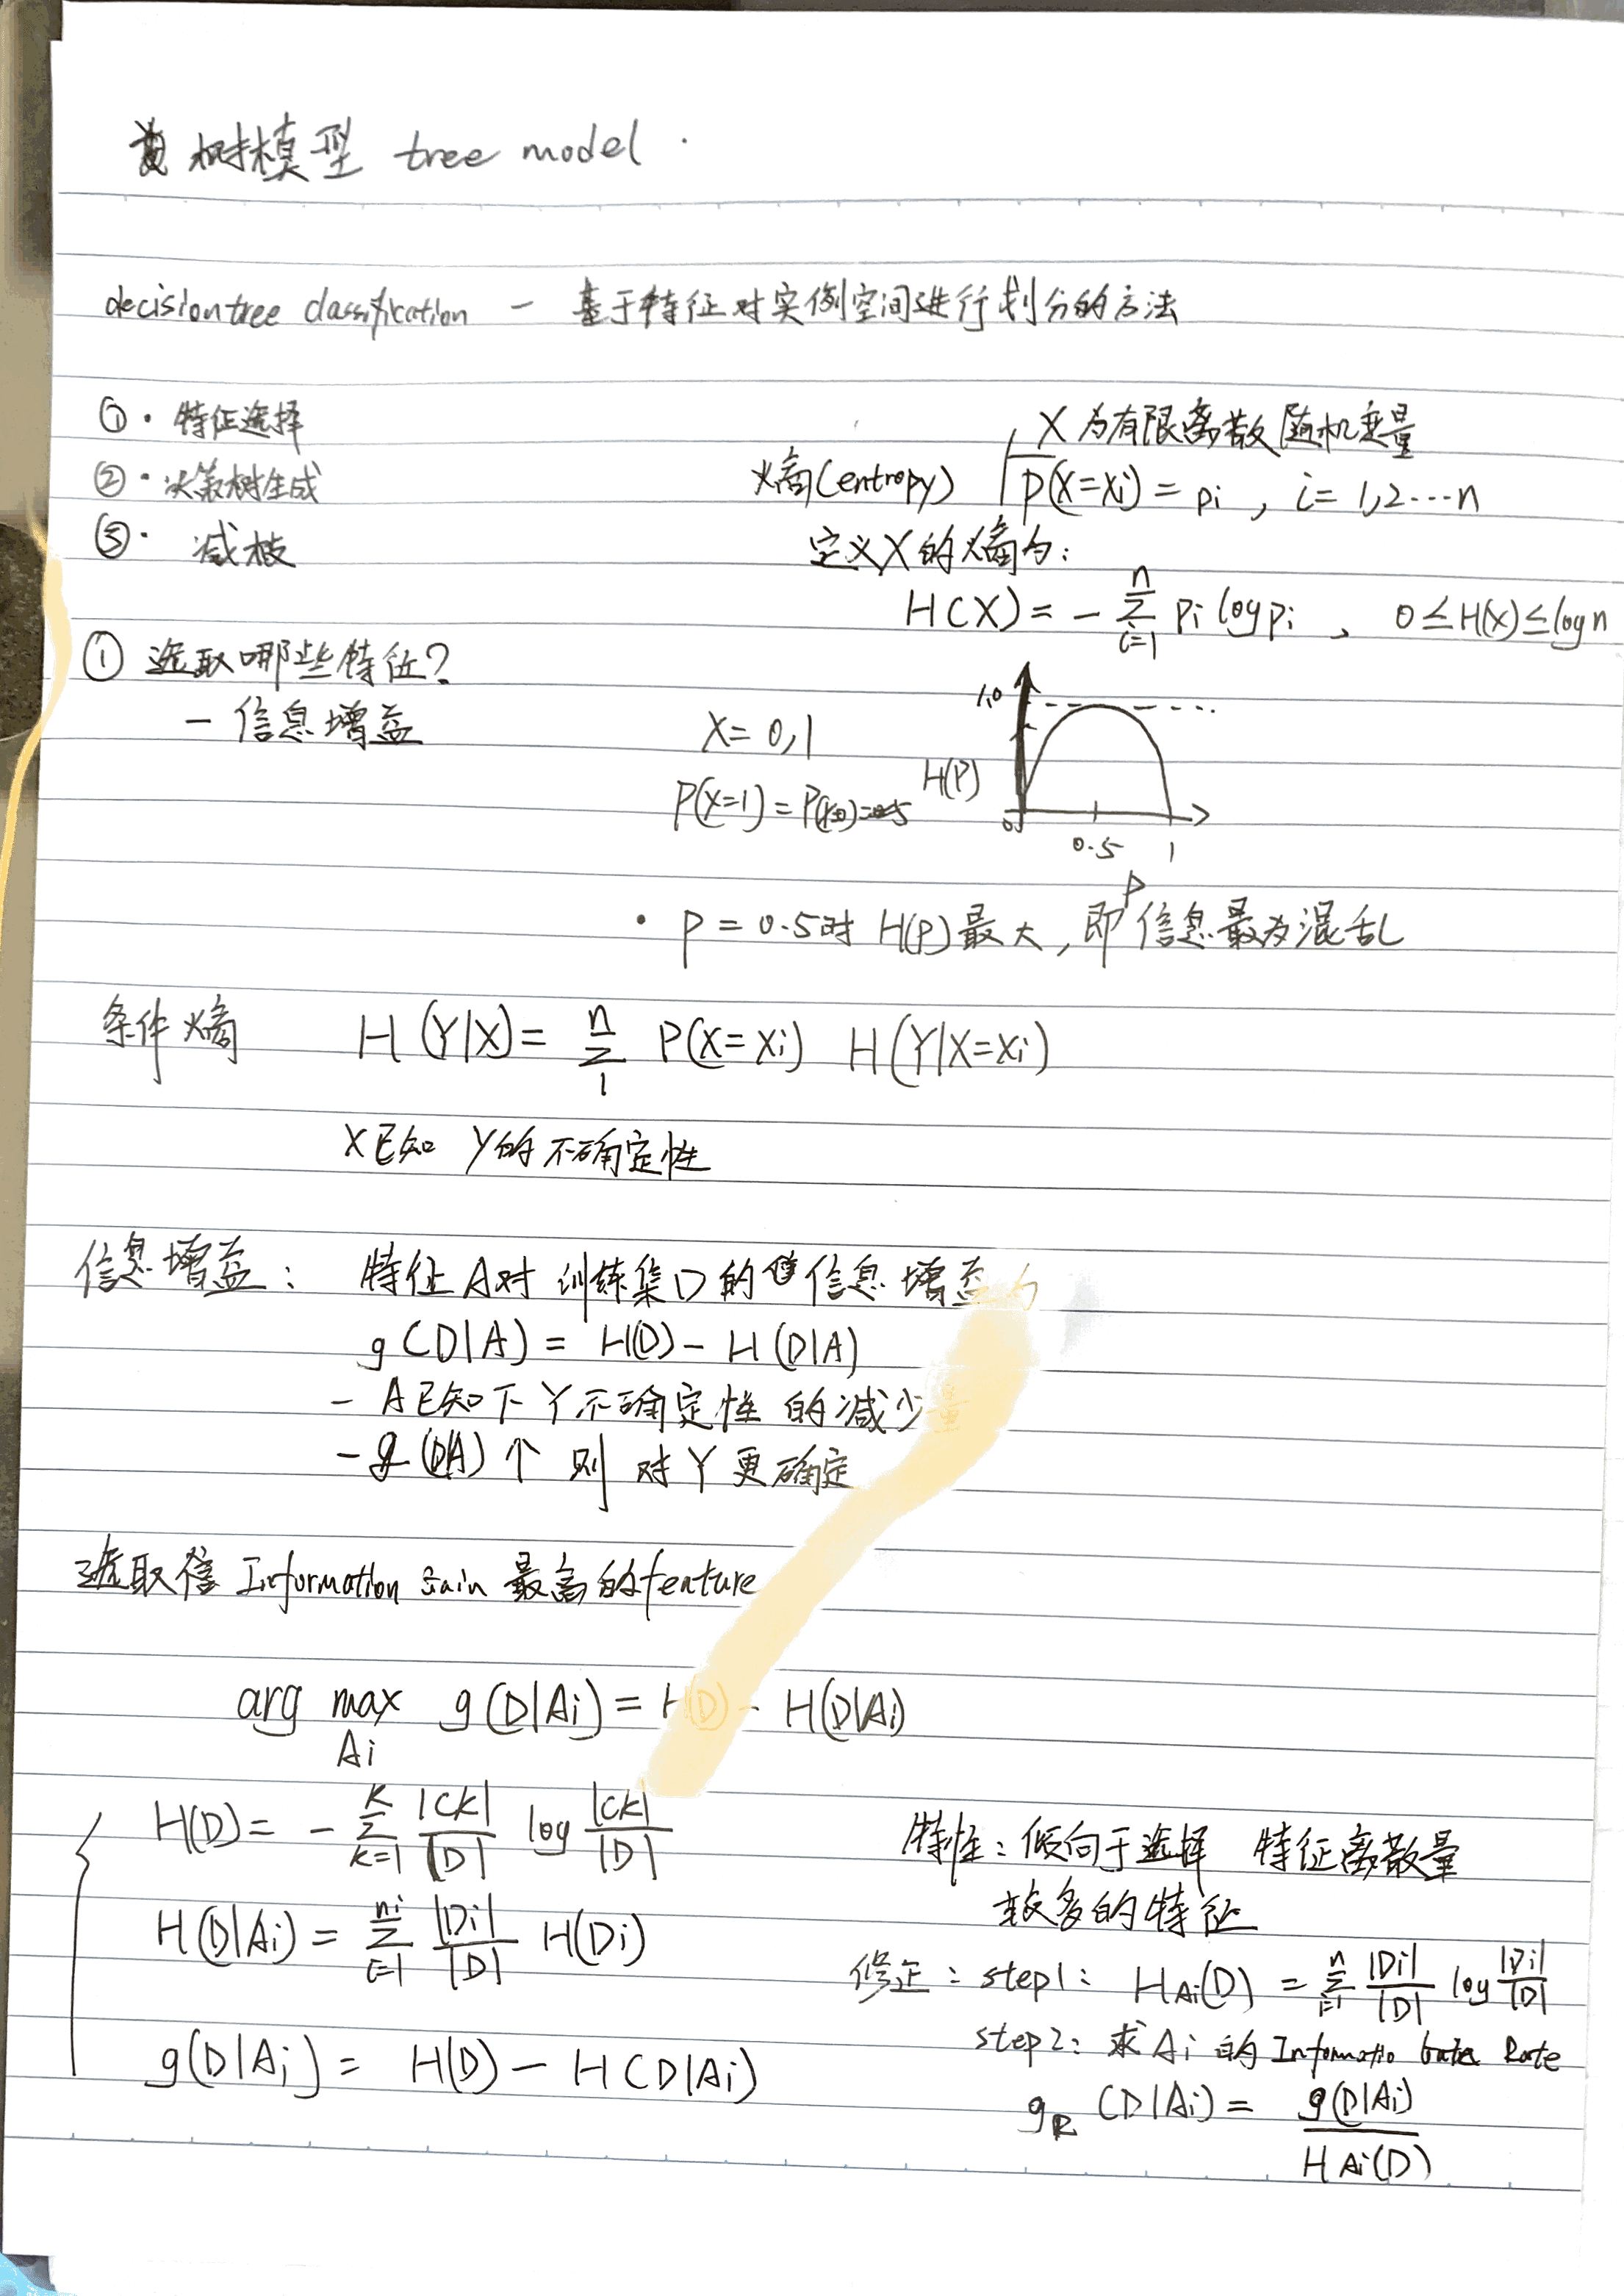 树模型 tree model .
decisiontree classification — 基于特征对实例空间进行划分的方法
①· 特征选择
②· 决策树生成
③· 减枝
X为有限离散随机变量
熵(entropy) P(X=xi) = pi , i= 1,2…n
定义X的熵为:
H(X) = - n∑i=1 pi log pi , 0≤H(X)≤log n
① 选取哪些特征?
— 信息增益
X= 0,1
P(X=1) = P(X=0)=0.5
1.0
H(P)
0
0.5 1
P
· P = 0.5时 H(P)最大,即信息最为混乱
条件熵 H(Y|X)= n∑1 P(X=xi) H(Y|X=xi)
X已知 Y的不确定性
信息增益: 特征A对训练集D的信息增益为
g(D|A) = H(D) - H(D|A)
- A已知下Y不确定性的减少量
- g(D|A)个 则 对Y更确定
选取信 Information Gain 最高的feature
arg max Ai g(D|Ai) = H(D) - H(D|Ai)
H(D) = - K∑k=1 |Ck|/|D| log |Ck|/|D|
H(D|Ai) = ni∑i=1 |Di|/|D| H(Di)
g(D|Ai) = H(D) - H(D|Ai)
特性: 倾向于选择 特征离散量
较多的特征
修正: step1: HAi(D) = n∑i=1 |Di|/|D| log |Di|/|D|
step2: 求Ai的 Informatio Rate
gR (D|Ai) = g(D|Ai)/HAi(D)